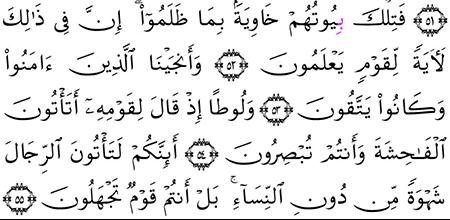 ۝٥١ فَتِلْكَ بِيُوتُهُمْ خَاوِيَةًۢ بِمَا ظَلَمُوٓا۟ ۗ إِنَّ فِى ذَٰلِكَ
لَأٓيَةً لِّقَوْمٍ يَعْلَمُونَ ۝٥٢ وَأَنجَيْنَا ٱلَّذِينَ ءَامَنُوا۟
وَكَانُوا۟ يَتَّقُونَ ۝٥٣ وَلُوطًا إِذْ قَالَ لِقَوْمِهِۦٓ أَتَأْتُونَ
ٱلْفَٰحِشَةَ وَأَنتُمْ تُبْصِرُونَ ۝٥٤ أَئِنَّكُمْ لَتَأْتُونَ ٱلرِّجَالَ
شَهْوَةً مِّن دُونِ ٱلنِّسَآءِ ۚ بَلْ أَنتُمْ قَوْمٌ تَجْهَلُونَ ۝٥٥